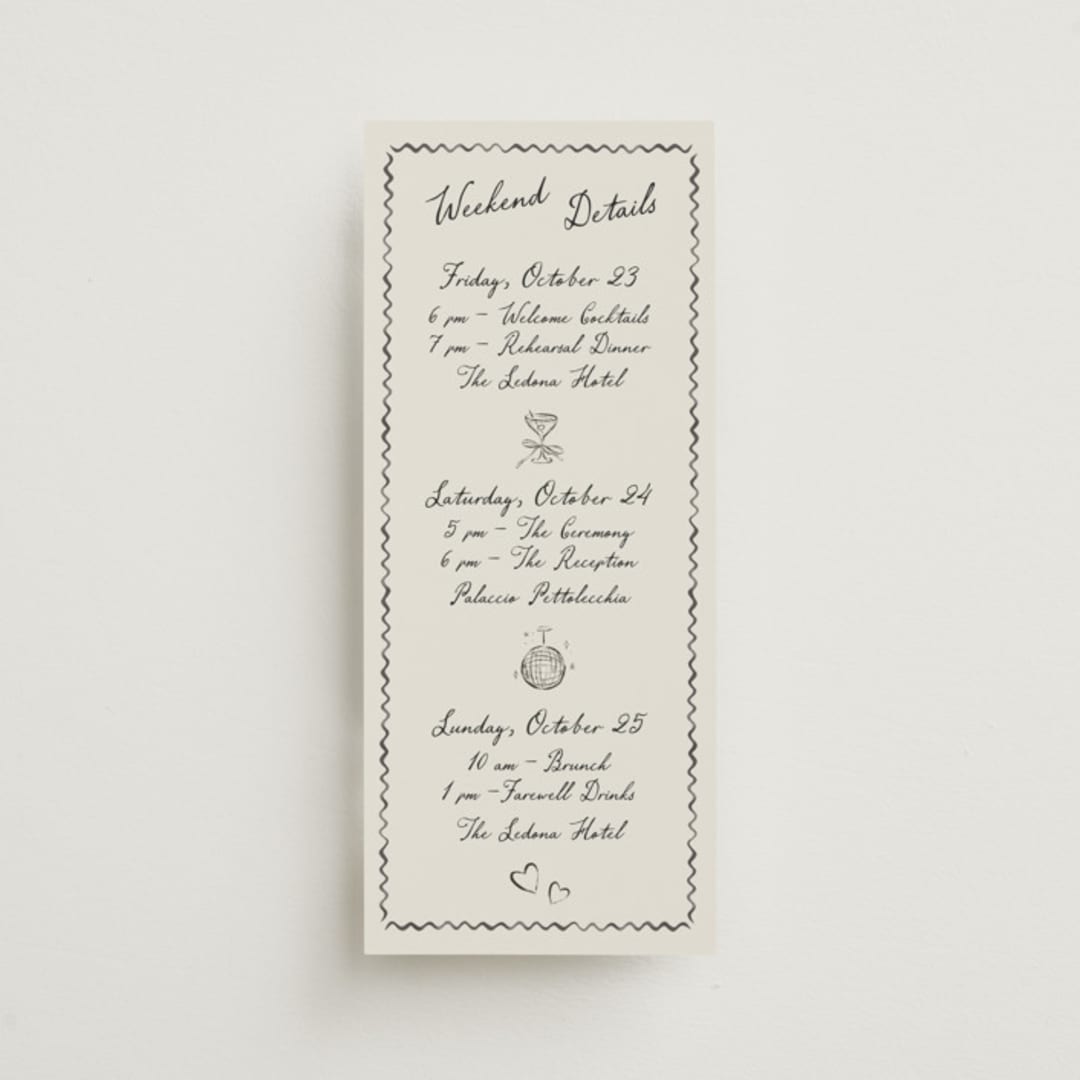 Weekend Details
Friday, October 23
6 pm – Welcome Cocktails
7 pm – Rehearsal Dinner
The Ledona Hotel
Saturday, October 24
5 pm – The Ceremony
6 pm – The Reception
Palaccio Pettolecchia
Sunday, October 25
10 am – Brunch
1 pm –Farewell Drinks
The Ledona Hotel